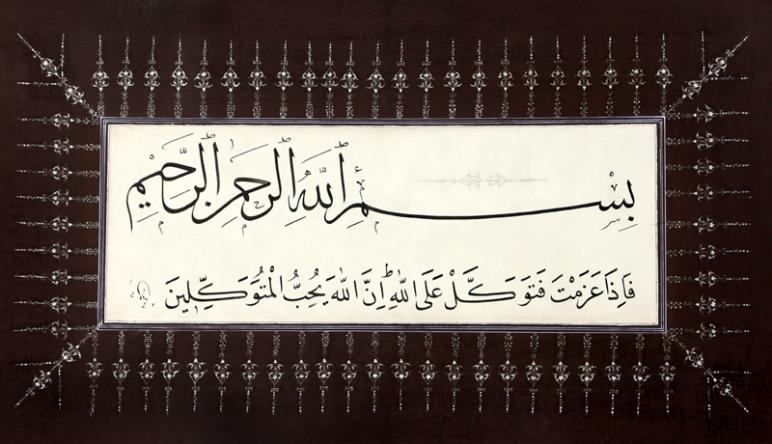 بِسْمِ ٱللَّهِ ٱلرَّحْمَٰنِ ٱلرَّحِيمِ
فَإِذَا عَزَمْتَ فَتَوَكَّلْ عَلَى اللّٰهِ إِنَّ اللّٰهَ يُحِبُّ الْمُتَوَكِّلِينَ